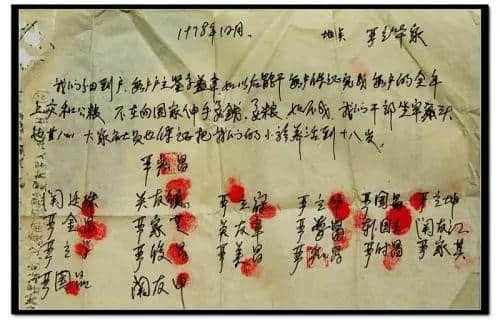 1978年12月 地点 严立华家
我们分田到户 每户户主签字盖章 如以后能干 每户保证完成每户的全年
上交和公粮 不在向国家伸手要钱要粮 如不成 我们干部坐牢杀头
也甘心 大家社员也保证把我们的小孩养活到十八岁。
严宏昌
关廷珠 关友德 严立符 严立华 严国昌 严立坤
严金昌 严家芝 关友章 严学昌 韩国云 关友江
严立学 严俊昌 严美昌 严宏昌 严付昌 严家其
严国品 关友申